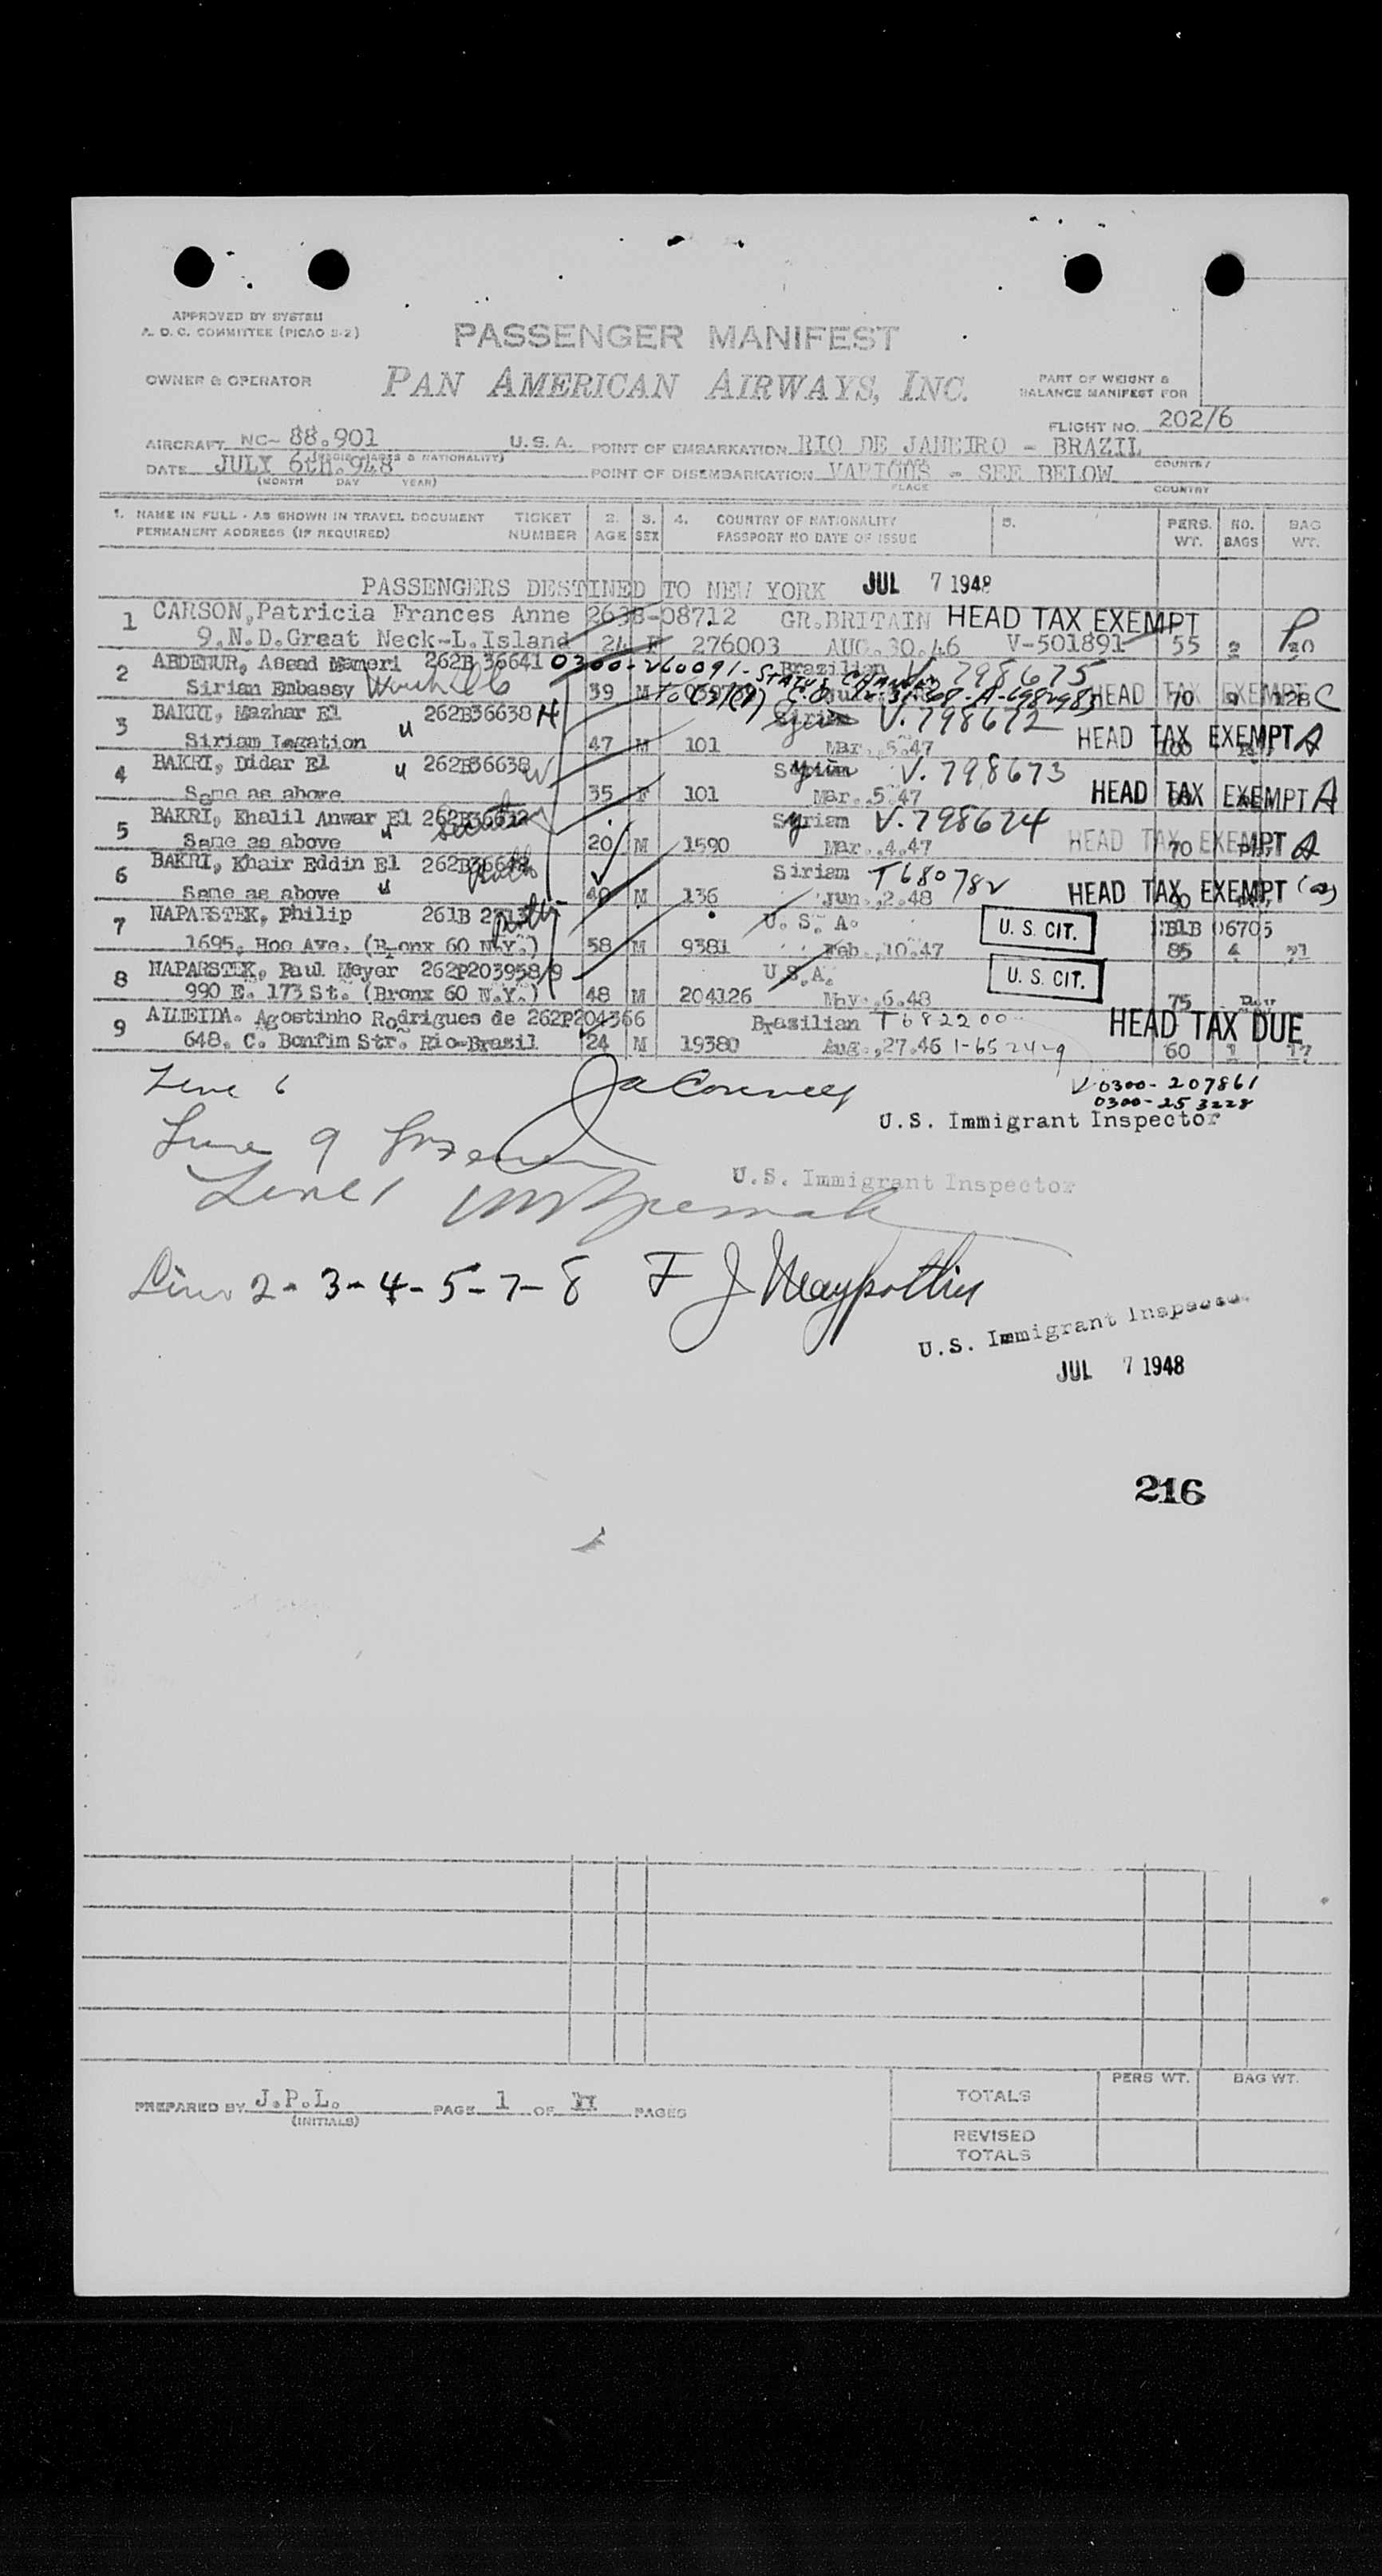 APPROVED BY SYSTEM
A. O. C. COMMITTEE (PICAO S-2)
PASSENGER MANIFEST
OWNER & OPERATOR PAN AMERICAN AIRWAYS, INC.
PART OF WEIGHT &
BALANCE MANIFEST FOR
FLIGHT NO. 202/6
AIRCRAFT NC- 88.901 U.S.A. POINT OF EMBARKATION RIO DE JANEIRO - BRAZIL
DATE JULY 6th.948 POINT OF DISEMBARKATION VARIOUS - SEE BELOW
(MONTH DAY YEAR) PLACE COUNTRY
1. NAME IN FULL - AS SHOWN IN TRAVEL DOCUMENT TICKET 2. 3. 4. COUNTRY OF NATIONALITY 5. PERS. NO. BAG
PERMANENT ADDRESS (IF REQUIRED) NUMBER AGE SEX PASSPORT NO DATE OF ISSUE WT. BAGS WT.
PASSENGERS DESTINED TO NEW YORK JUL 7 1948
1 CARSON, Patricia Frances Anne 263B-08712 GR.BRITAIN HEAD TAX EXEMPT
9.N.D.Great Neck-L.Island 24 F 276003 AUG.30.46 V-501891 55 2
2 ABDENUR, Assad Mameri 262B36641 0300-260091-STATUS CHANGED Brazilian V. 798675
Sirian Embassy 39 M HEAD TAX EXEMPT 70 128 C
3 BAKRI, Mazhar El 262B36638 H V.798672
Siriam Legation " 47 M 101 Mar. 5.47 HEAD TAX EXEMPT A
4 BAKRI, Didar El " 262B36638 W V. 798673
Same as above 35 F 101 Mar. 5.47 HEAD TAX EXEMPT A
5 BAKRI, Khalil Anwar El Syriam V.798674
Same as above " 20 M 1590 Mar. 4.47 HEAD TAX EXEMPT A 70
6 BAKRI, Khair Eddin El Siriam T680782
Same as above " 40 M 136 Jun. 2.48 HEAD TAX EXEMPT
7 NAPARSTEK, Philip 261B U. S. A. U. S. CIT. 06705
1695. Hoe Ave. (Bronx 60 N.Y.) 58 M 9381 Feb. 10.47 85 4
8 NAPARSTEK, Paul Meyer 262P203958/9 U.S.A. U. S. CIT.
990 E. 173 St. (Bronx 60 N.Y.) 48 M 204126 Nov. 6.48 75
9 ALMEIDA. Agostinho Rodrigues de 262P204366 Brasilian T682200 HEAD TAX DUE
648. C. Bonfim Str. Rio-Brasil 24 M 19380 Aug. 27.46 60 1 17
Line 6
V 0300-207861
0300-253228
U.S. Immigrant Inspector
Line 9
U.S. Immigrant Inspector
Line 1
Line 2-3-4-5-7-8 F J
U.S. Immigrant Inspector
JUL 7 1948
216
PERS WT. BAG WT.
TOTALS
PREPARED BY J.P.L. PAGE 1 OF PAGES
(INITIALS)
REVISED
TOTALS